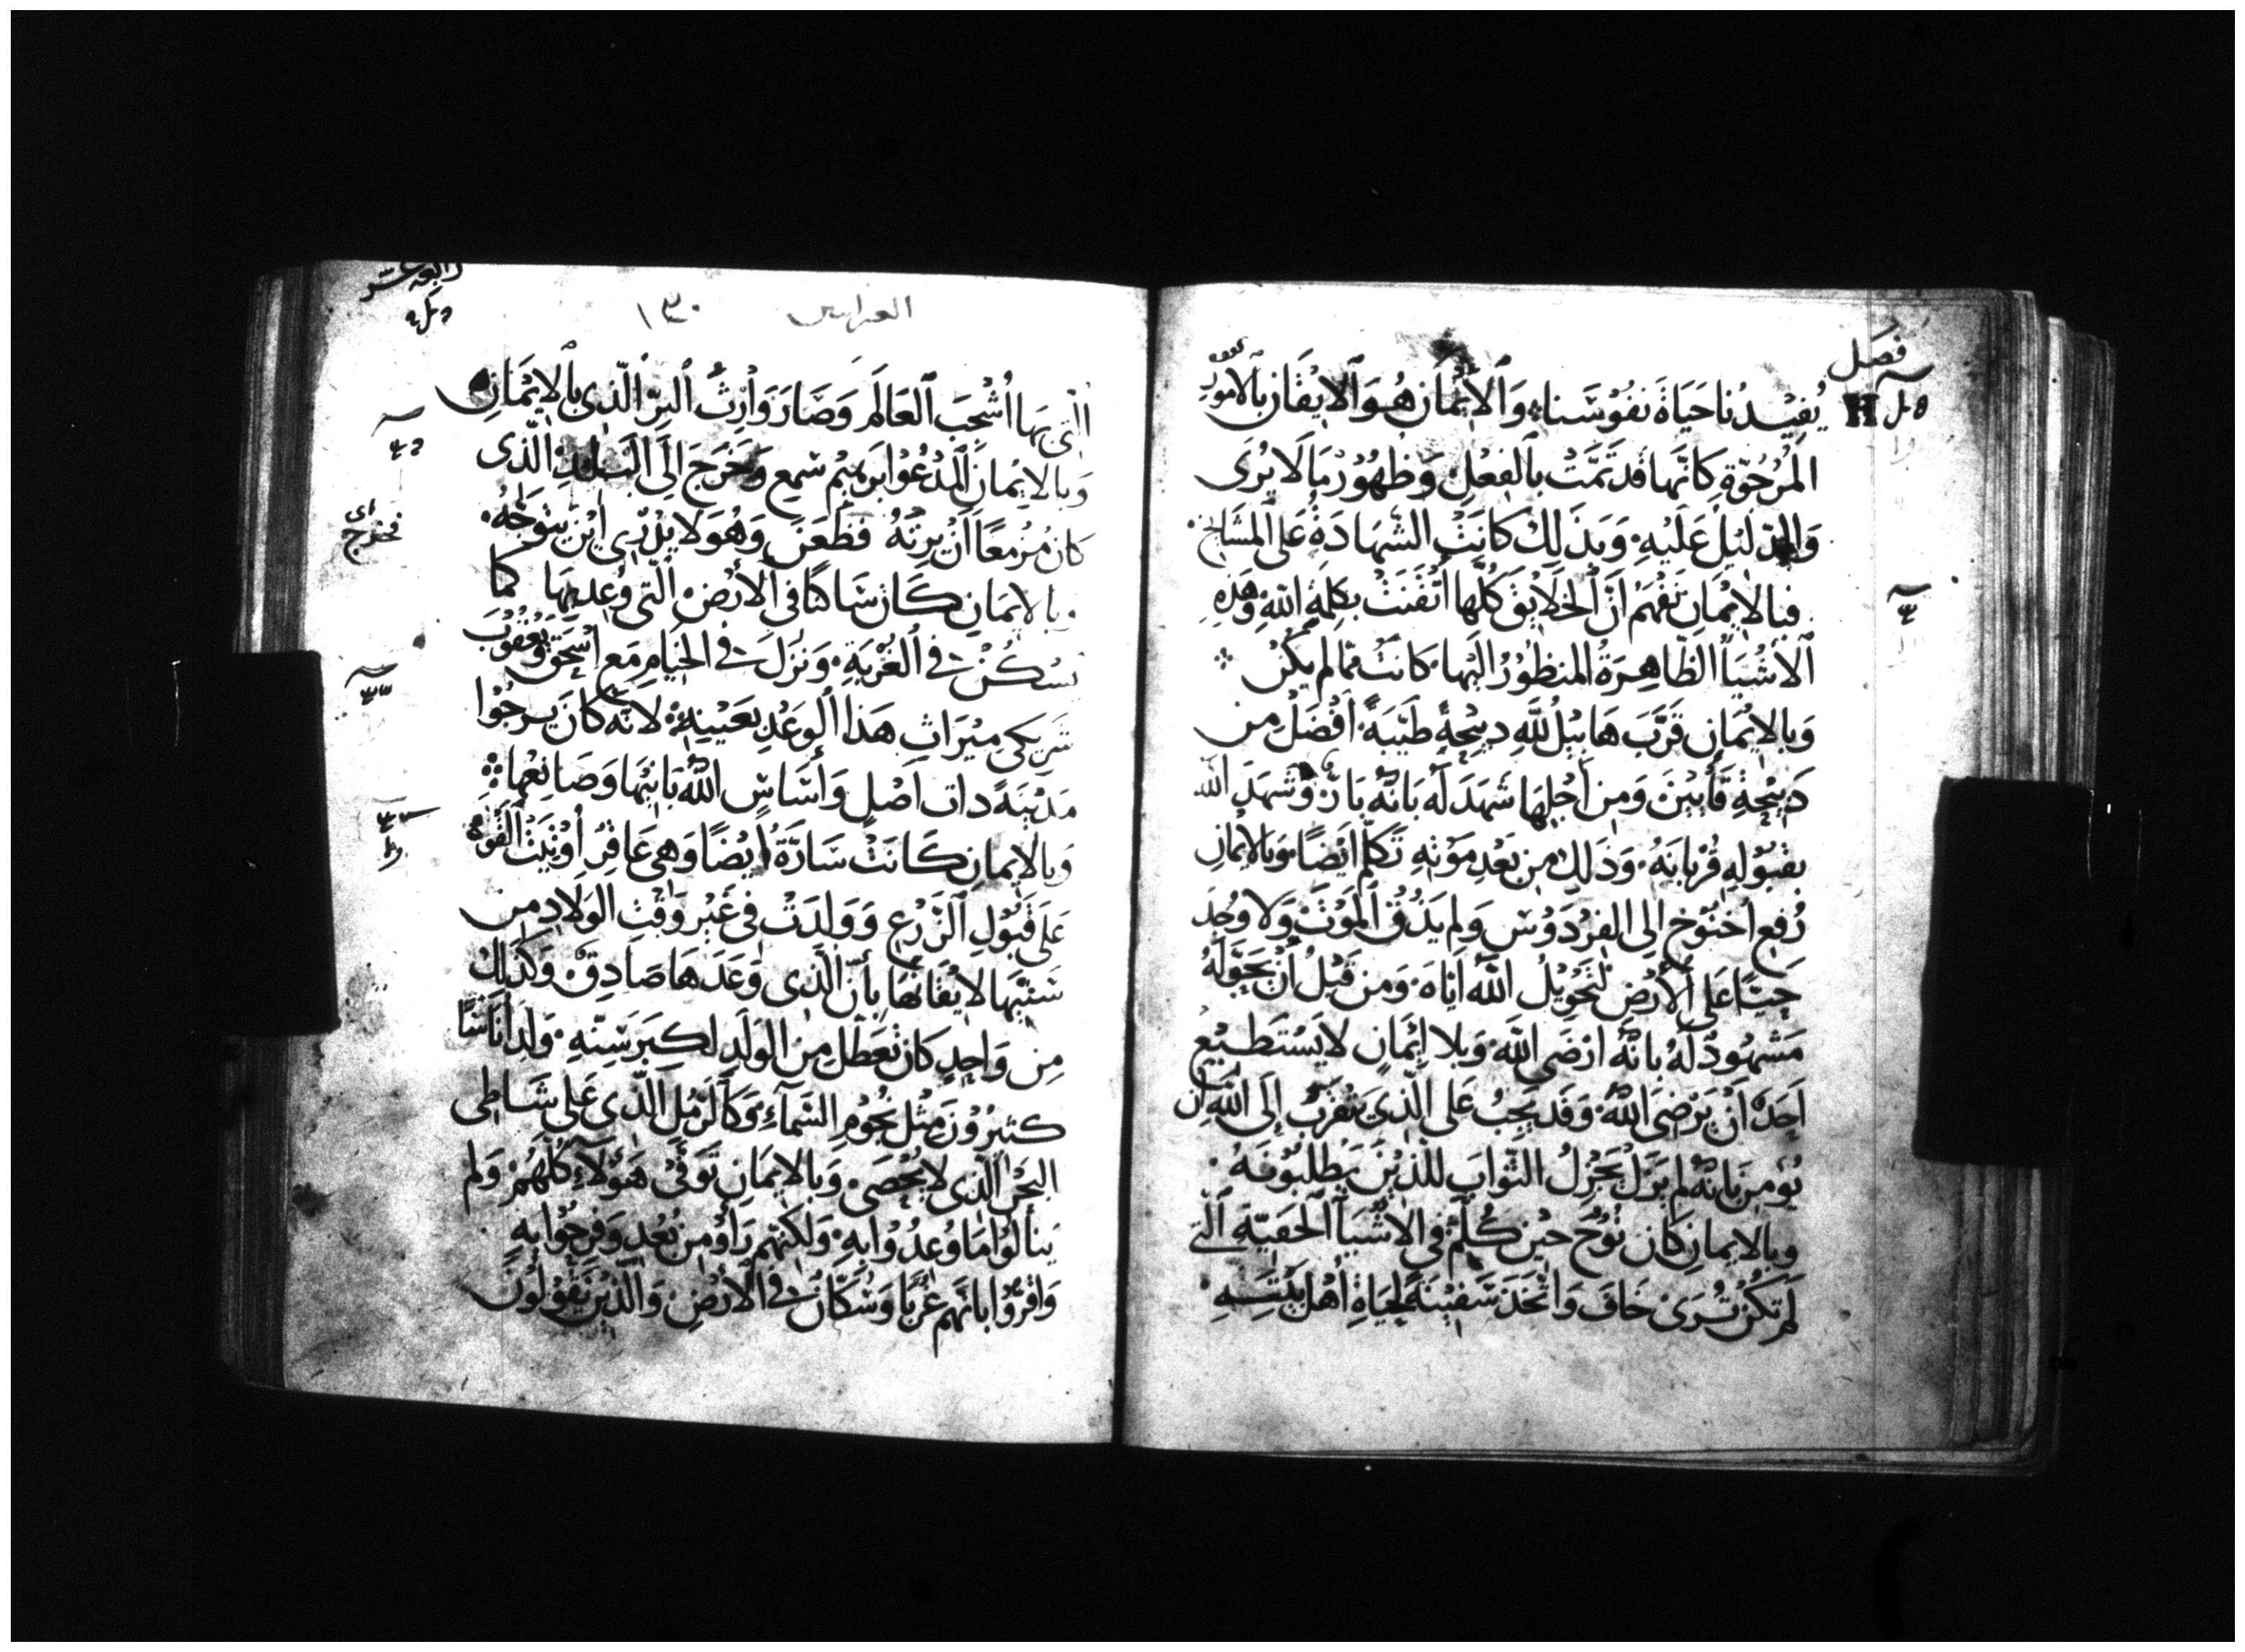 فصل
يُفِيْدُنا حَيَاةَ نفُوسَنا وَالايْمَان هُوَ الايْقَان بالامُورِ
المَرْجُوّةِ كَانّها قَد تمَّتْ بالفِعْلِ وَظهُوُرْ مَا لَا يُرَى
وَالدَّلِيْلُ عَلَيْهِ وَبذَلِكَ كَانَتْ الشَّهَادَةُ عَلى المشَايخ
فبالايْمَانِ نَفْهَمْ انَّ الخَلايقَ كُلّها اتْقَنَتْ بكلِمَةِ اللهِ وَهَذِهِ
الأشْيَآ الظَاهِرَةُ المنظوُرُ اليْهَا كَانَتْ مما لم يَكُنْ
وَبالايْمَانِ قَرَّبَ هَابيْل للَّهِ دبيْحَةً طَيّبَةً افْضَل من
دَبيْحَةِ قَأيِيْنَ وَمِن أجْلِهَا شَهَدَ لَهُ بانّهُ بَارٌ وَشهَدَ الله
بقبوُلهِ قُرْبانَهُ وَذَلِكَ مِن بَعْدِ مَوْتهِ تَكَلّم ايْضًا وَبالايْمانِ
رُفِع اخنُوْخ الى الفِرْدَوْس وَلم يَذُقْ المَوْتَ وَلا وُجِدَ
حَيًّا عَلى الأرْضِ لتحْوِيْلُ اللهُ ايّاهَ وَمِن قَبْلُ أنْ يحَوّلَهُ
مَشهُودٌ لَهُ بانّهُ ارْضَى اللهَ وَبلا إيْمَانٍ لا يَسْتَطِيْعُ
احَدٌ أنْ يَرْضِىَ اللهُ وَقَد يَجِبُ عَلى الّذِى يتقرّبْ إلى اللهِ أن
يُؤمِنَ بانّهُ لم يزَلْ يَجْزِلُ الثّوابَ للّذِيْنَ يَطْلبُوُنهُ
وبالايمانِ كَان نُوْحُ حِيْن كُلّمَ في الاشْيَآ الخَفِيّةِ الّتي
لَم تَكُنْ تُرَى خَافَ وَاتّخَذَ سَفِيْنَةً لحِيَاةِ أهْل بَيْتِهِ
العبرانيين ١٣٠
الّتى بهَا أشْجبَ العَالَم وَصَارَ وَارِثُ البِرّ الّذِى بالايْمَانِ
وَبالايْمان المدْعُوْ ابرَهِيْمْ سَمِع وَخَرَجَ الَى البَلَدِ الّذى
كان مُزْمعًا أنْ يَرِثهُ فظَعَنَ وَهُوَ لا يدْرِي ايْنَ يتوَجّهُ
وبالايمَانِ كَانَ سَاكنًا في الأرْضِ الّتى وُعِد بهَا كما
يسْكُنْ في الغُرْبَةِ وَنزَلَ في الخيَامِ مَع اسْحَقَ وَيَعْقُوْبَ
شريْكى ميْرَاثِ هَذا الوَعْدِ بعَيْنِهِ لانّهُ كَانَ يرجُوْا
مَدِيْنَةً دات اصْلٍ وَأسَاسٍ اللهُ بَانِيْهَا وَصَانِعهَا
وَبالايمانِ كَانَتْ سَارّةُ أيْضًا وَهى عَاقِرُ أوْتِيَتْ القُوّةُ
عَلى قَبُوْلِ الزّرْعِ وَوَلدَتْ فى غيْر وَقْتِ الولادِ مِن
سَنيْهَا لايقَانِهَا بأنّ الّذِى وَعَدَهَا صَادِقٌ وَكَذَلكَ
مِن وَاحِدٍ كان تعَطّلَ مِن الوَلَدِ لكِبَر سِنّهِ وَلِدَ أنَاسًا
كثيْرُوْنَ مِثل نجُوْمِ السّمَآءِ وَكَالرّمْلِ الّذِى عَلى شَاطِى
البَحْرِ الّذِى لا يُحْصَى وَبالايمَانِ توَفّىْ هَؤُلآءِ كُلّهُمْ وَلم
يَنالوُا مَا وُعِدُوا بهِ وَلكنّهم رَأوْ مِن بُعْدٍ وَفرِحُوا بهِ
وَاقرّوُا بانّهم غُرَبا وَسُكّانٌ في الأرْضِ وَالّذِيْن يَقوُلُوْنَ